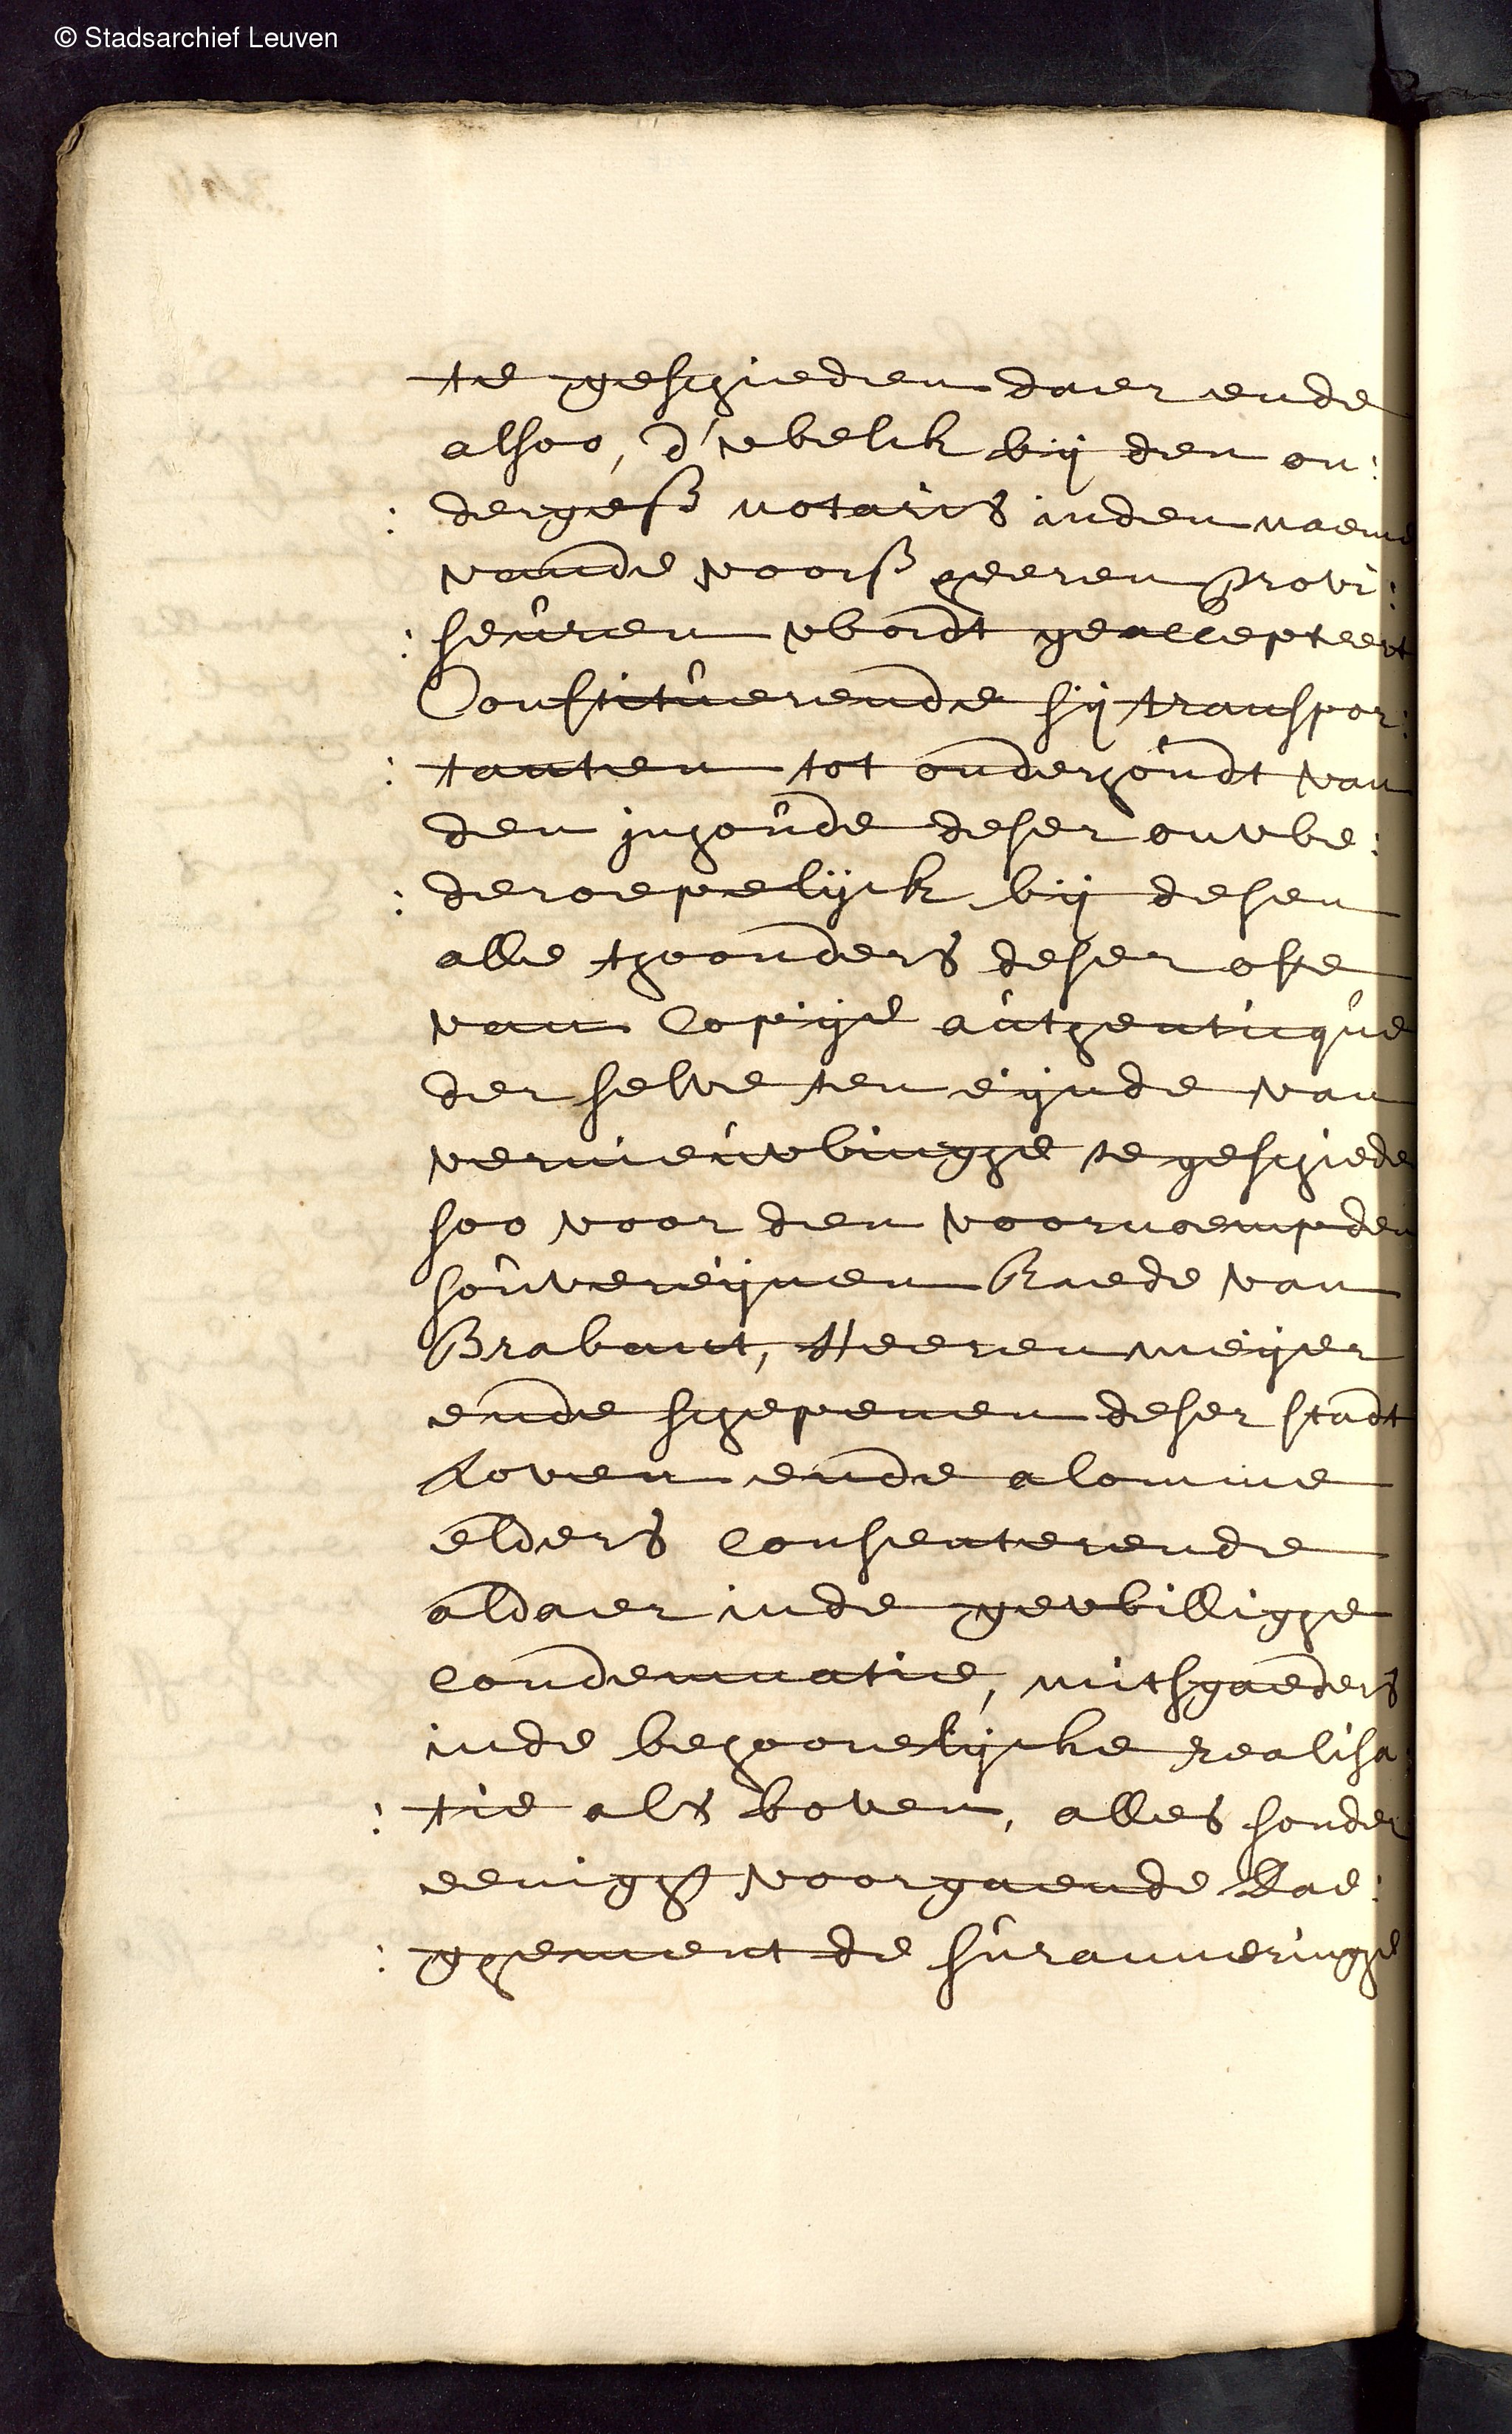 © Stadsarchief Leuven
te geschieden daer ende
alsoo, d'welck bij den on:
: dergess notaris inden naeme
vande voorss heeren Provi:
: seuren wordt geaccepteert
Constituerende sij transpor:
: tanten tot onderhoudt van
den inhoude deser onwe:
: deroepelijck bij desen
alle thoonders deser ofte
van copije authenticque
der selve ten eijnde van
vernieuwinghe te geschieden
soo voor den voornoempden
souvereijnen Raede van
Brabant, Heeren meijer
ende schepenen deser stadt
Loven ende alomme
elders consenterende
aldaer inde gewillighe
condemnatie, mitsgaeders
inde behoorelijcke realisa:
: tie als boven, alles sonder
eenigh voorgaende Dae:
: ghement de suranneringhe